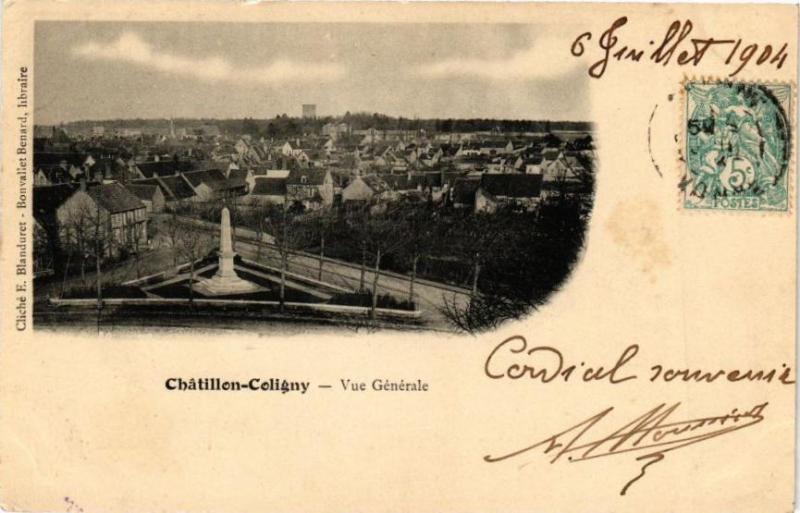 6 Juillet 1904
5c
POSTES
Cliché E. Blanduret - Bonvallet Benard, libraire
Châtillon-Coligny — Vue Générale
Cordial souvenir